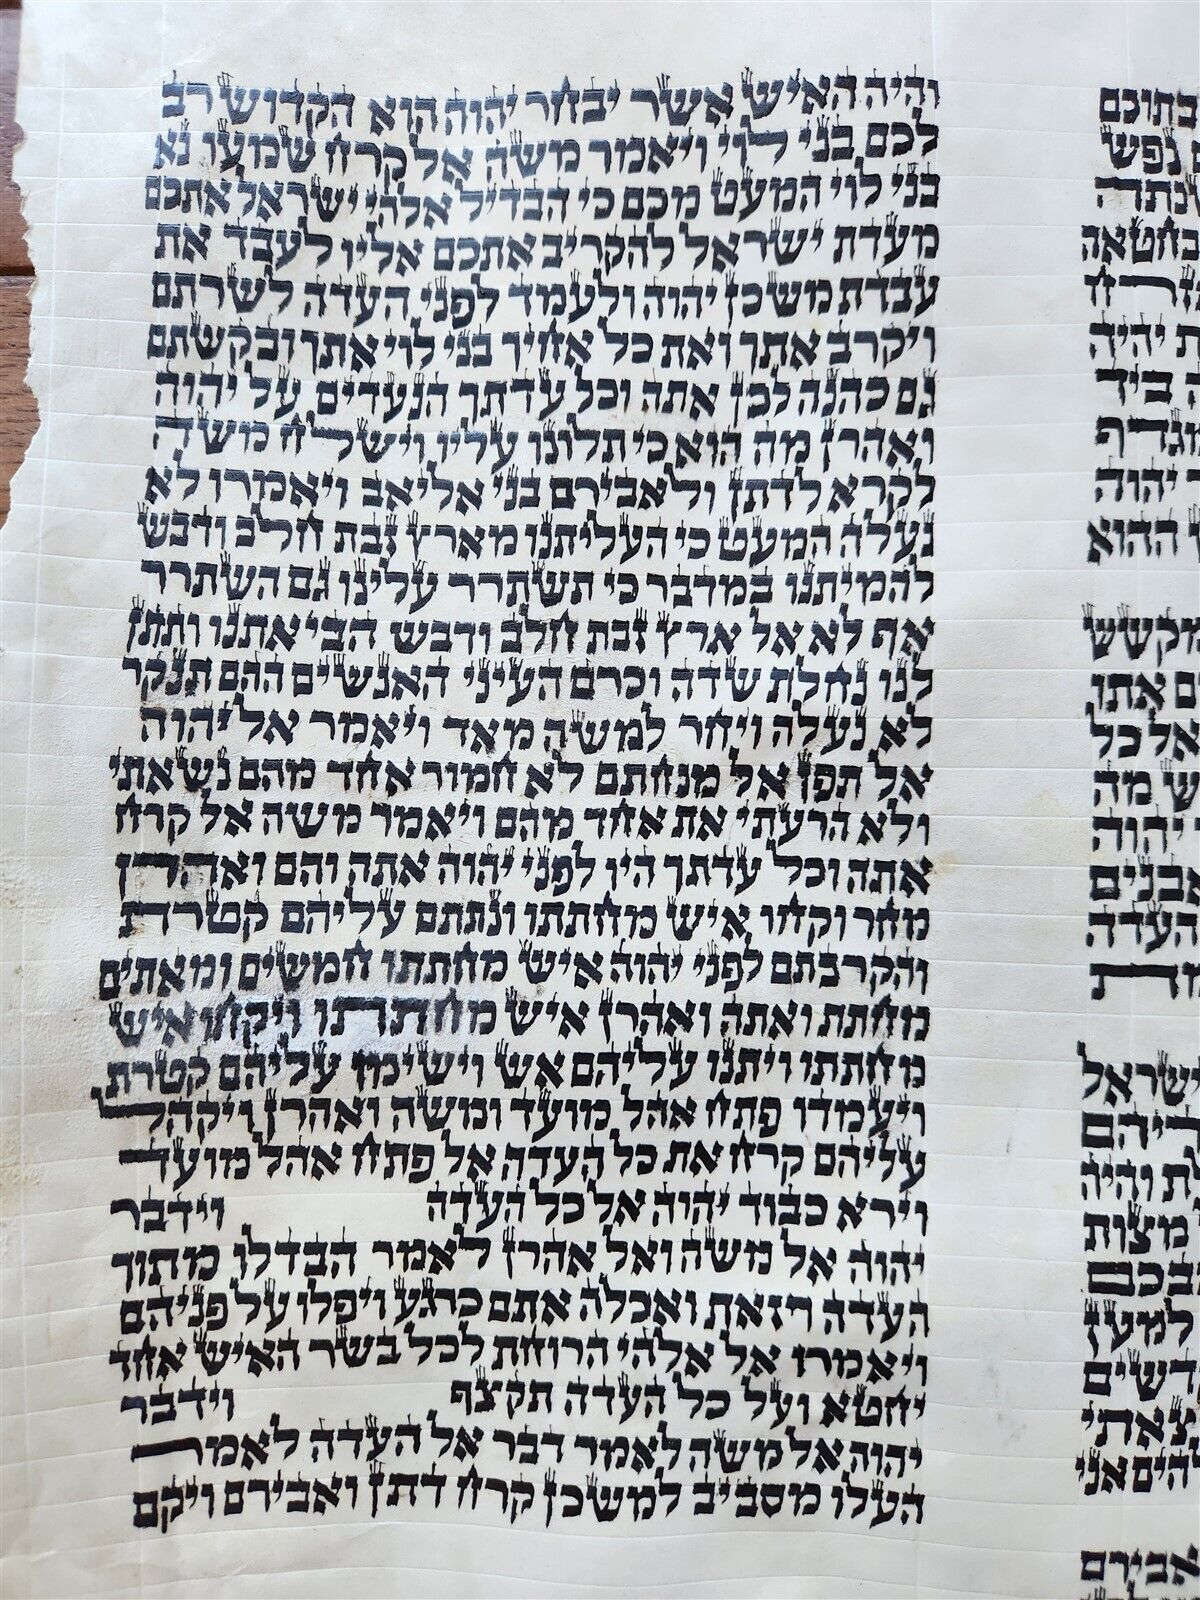 והיה האיש אשר יבחר יהוה הוא הקדוש רב
לכם בני לוי ויאמר משה אל קרח שמעו נא
בני לוי המעט מכם כי הבדיל אלהי ישראל אתכם
מעדת ישראל להקריב אתכם אליו לעבד את
עבדת משכן יהוה ולעמד לפני העדה לשרתם
ויקרב אתך ואת כל אחיך בני לוי אתך ובקשתם
גם כהנה לכן אתה וכל עדתך הנעדים על יהוה
ואהרן מה הוא כי תלונו עליו וישלח משה
לקרא לדתן ולאבירם בני אליאב ויאמרו לא
נעלה המעט כי העליתנו מארץ זבת חלב ודבש
להמיתנו במדבר כי תשתרר עלינו גם השתרר
אף לא אל ארץ זבת חלב ודבש הביאתנו ותתן
לנו נחלת שדה וכרם העיני האנשים ההם תנקר
לא נעלה ויחר למשה מאד ויאמר אל יהוה
אל תפן אל מנחתם לא חמור אחד מהם נשאתי
ולא הרעתי את אחד מהם ויאמר משה אל קרח
אתה וכל עדתך היו לפני יהוה אתה והם ואהרן
מחר וקחו איש מחתתו ונתתם עליהם קטרת
והקרבתם לפני יהוה איש מחתתו חמשים ומאתים
מחתת ואתה ואהרן איש מחתתו ויקחו איש
מחתתו ויתנו עליהם אש וישימו עליהם קטרת
ויעמדו פתח אהל מועד ומשה ואהרן ויקהל
עליהם קרח את כל העדה אל פתח אהל מועד
וירא כבוד יהוה אל כל העדה וידבר
יהוה אל משה ואל אהרן לאמר הבדלו מתוך
העדה הזאת ואכלה אתם כרגע ויפלו על פניהם
ויאמרו אל אלהי הרוחת לכל בשר האיש אחד
יחטא ועל כל העדה תקצף וידבר
יהוה אל משה לאמר דבר אל העדה לאמר
העלו מסביב למשכן קרח דתן ואבירם ויקם
בתוכם
נפש
ונתדה
בחטאה
יהיה
ביד
יהוה
ההוא
אתו
אל כל
מה
יהוה
אבנים
העדה
ישראל
והיה
מצות
למען
אני
אבירם